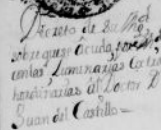 Decreto de Su Mag.d
sobre que se acuda
con las Luminarias
hordinarias al Doctor D
Juan del Castillo